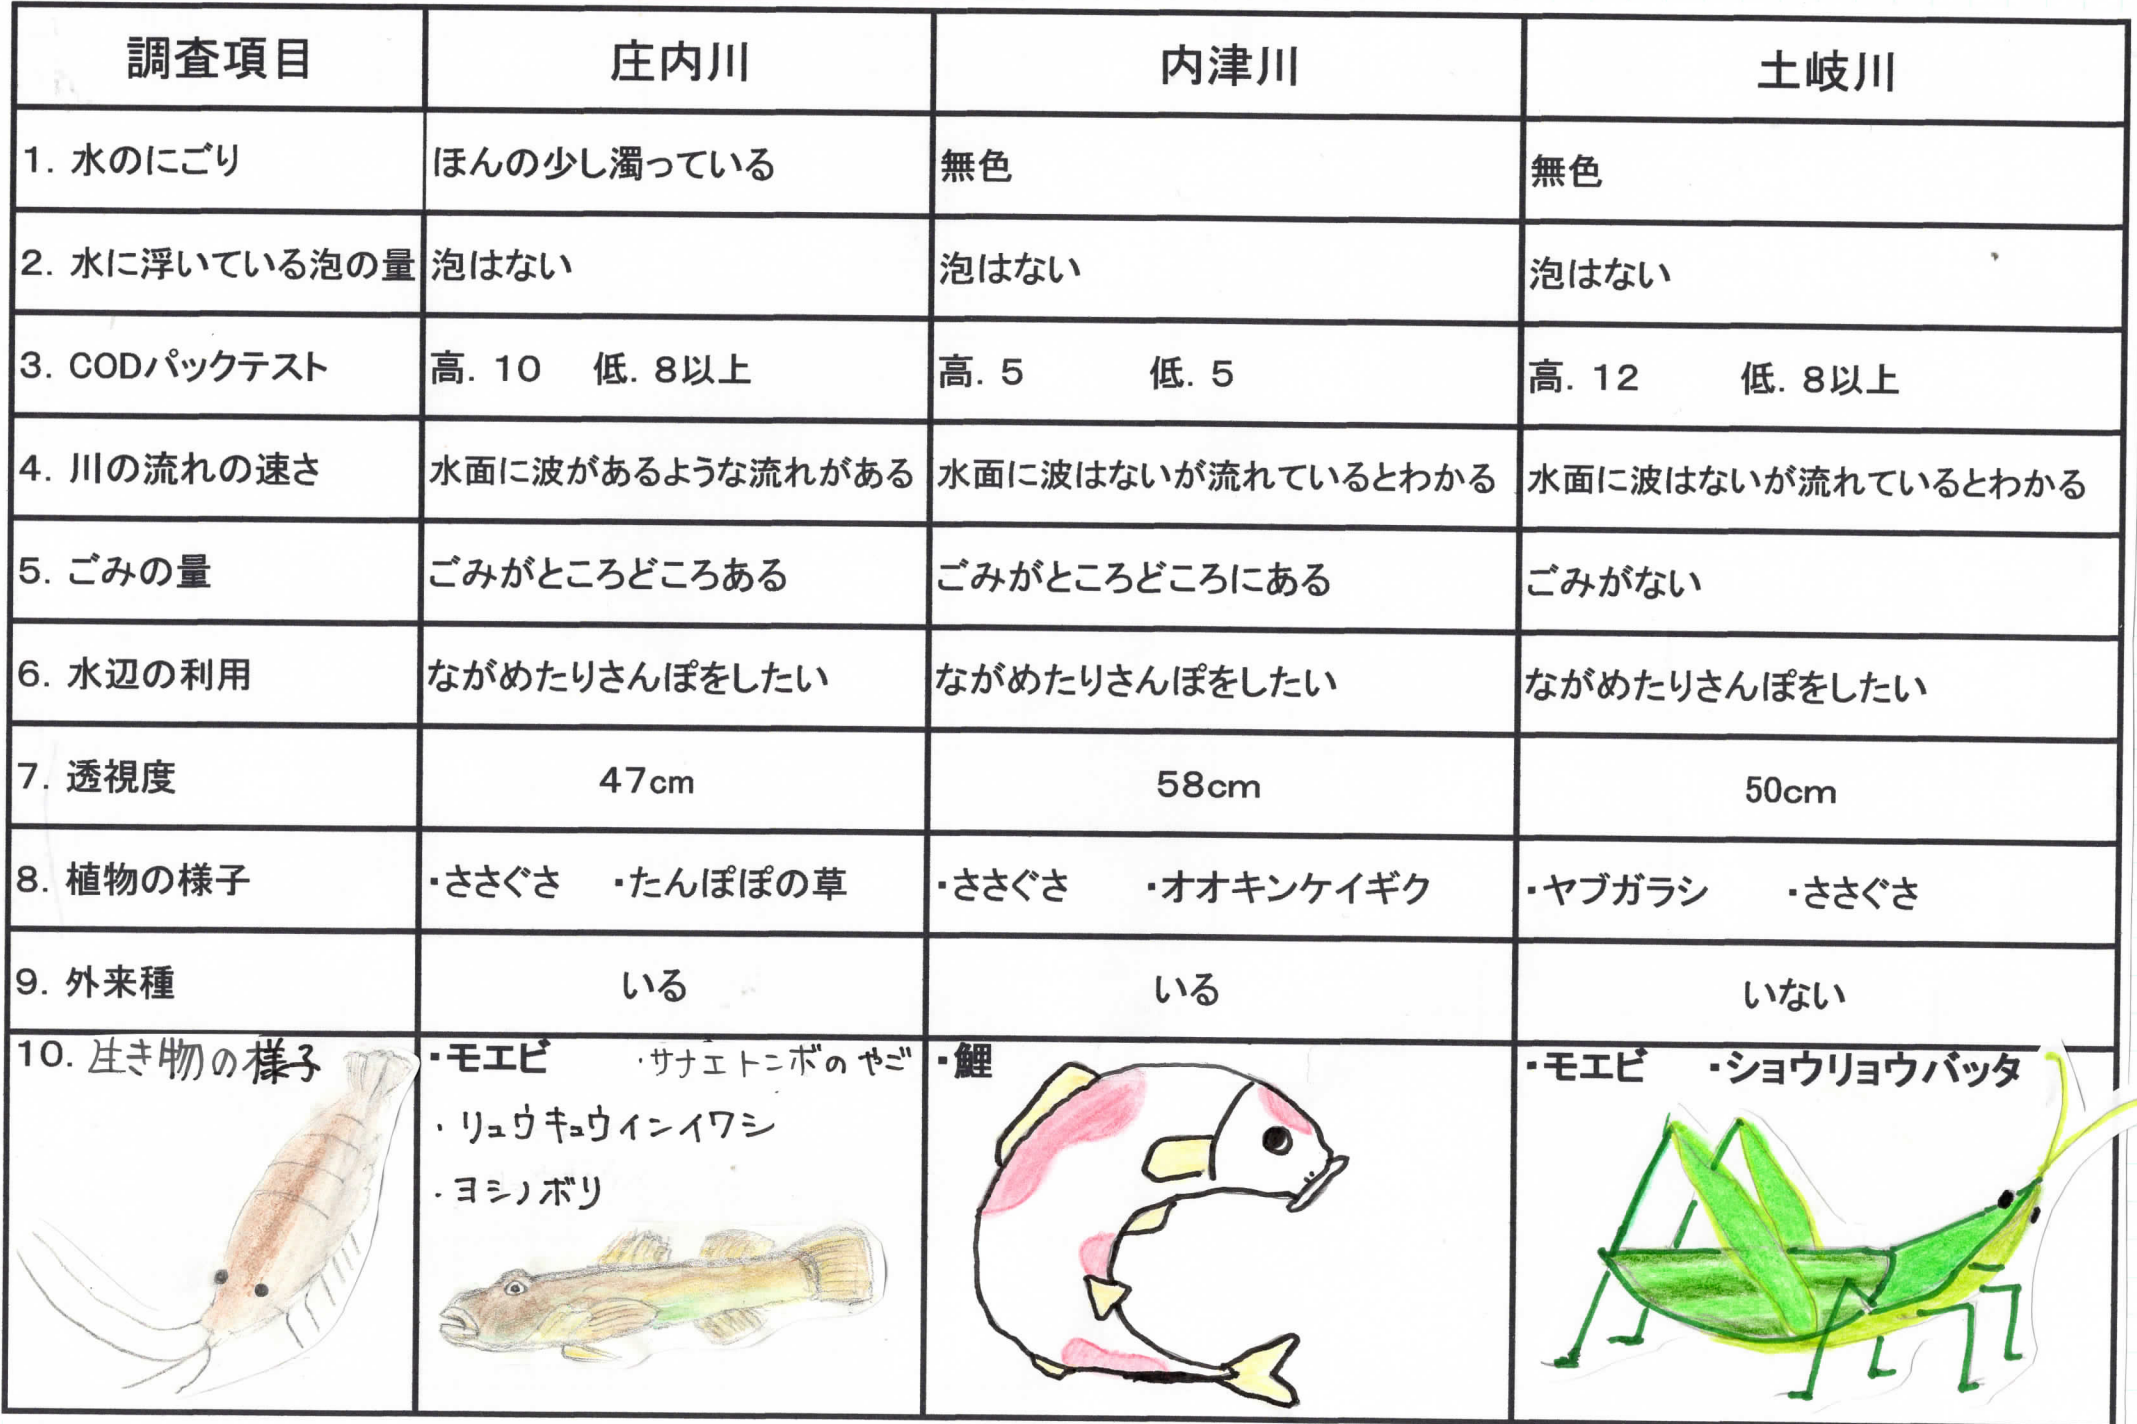 調査項目 庄内川 内津川 土岐川
1. 水のにごり ほんの少し濁っている 無色 無色
2. 水に浮いている泡の量 泡はない 泡はない 泡はない
3. CODパックテスト 高. 10 低. 8以上 高. 5 低. 5 高. 12 低. 8以上
4. 川の流れの速さ 水面に波があるような流れがある 水面に波はないが流れているとわかる 水面に波はないが流れているとわかる
5. ごみの量 ごみがところどころある ごみがところどころにある ごみがない
6. 水辺の利用 ながめたりさんぽをしたい ながめたりさんぽをしたい ながめたりさんぽをしたい
7. 透視度 47cm 58cm 50cm
8. 植物の様子 ・ささぐさ ・たんぽぽの草 ・ささぐさ ・オオキンケイギク ・ヤブガラシ ・ささぐさ
9. 外来種 いる いる いない
10. 生き物の様子 ・モエビ ・サナエトンボのやご ・鯉 ・モエビ ・ショウリョウバッタ
・リュウキュウインイワシ
・ヨシノボリ